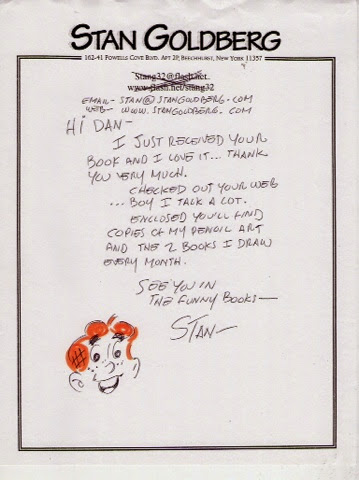 STAN GOLDBERG
162-41 POWELLS COVE BLVD. APT 2P, BEECHHURST, NEW YORK 11357
Stang32@flash.net
www.flash.net/stang32
EMAIL- STAN@STANGOLDBERG.COM
WEB- WWW.STANGOLDBERG.COM
HI DAN-
I JUST RECEIVED YOUR
BOOK AND I LOVE IT... THANK
YOU VERY MUCH.
CHECKED OUT YOUR WEB
...BOY I TALK A LOT.
ENCLOSED YOU'LL FIND
COPIES OF MY PENCIL ART
AND THE 2 BOOKS I DRAW
EVERY MONTH.
SEE YOU IN
THE FUNNY BOOKS—
STAN—